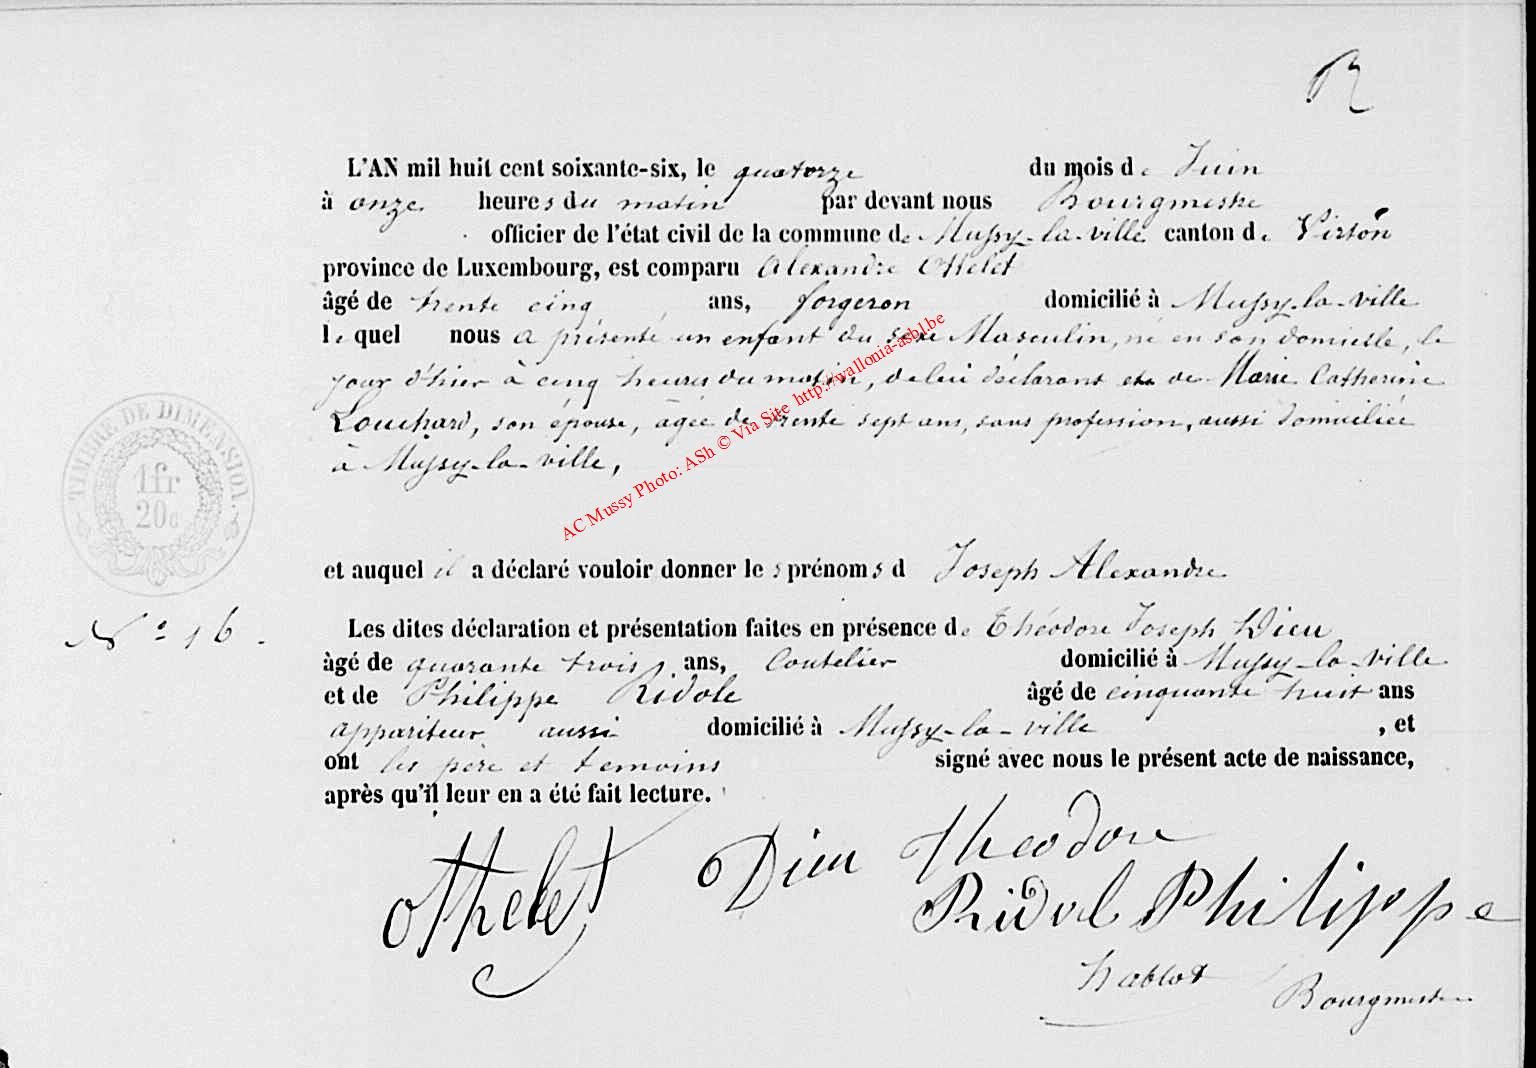 R
L'AN mil huit cent soixante-six, le quatorze du mois de Juin
à onze heures du matin par devant nous Bourgmestre
officier de l'état civil de la commune de Mussy-la-ville canton de Virton
province de Luxembourg, est comparu Alexandre Othelet
âgé de trente cinq ans, forgeron domicilié à Mussy-la-ville
lequel nous a présenté un enfant du sexe Masculin, né en son domicile, le
jour d'hier à cinq heures du matin, de lui déclarant et de Marie Catherine
Louchard, son épouse, âgée de trente sept ans, sans profession, aussi domiciliée
à Mussy-la-ville,
TIMBRE DE DIMENSION.
1fr
20c
AC Mussy Photo: ASh © Via Site http://wallonia-asbl.be
et auquel il a déclaré vouloir donner les prénoms d Joseph Alexandre
N° 16.
Les dites déclaration et présentation faites en présence de Théodore Joseph Dieu
âgé de quarante trois ans, Coutelier domicilié à Mussy-la-ville
et de Philippe Ridole âgé de cinquante huit ans
appariteur aussi domicilié à Mussy-la-ville, et
ont les père et témoins signé avec nous le présent acte de naissance,
après qu'il leur en a été fait lecture.
Othelet Dieu Theodore
Ridol Philippe
hablot
Bourgmestre